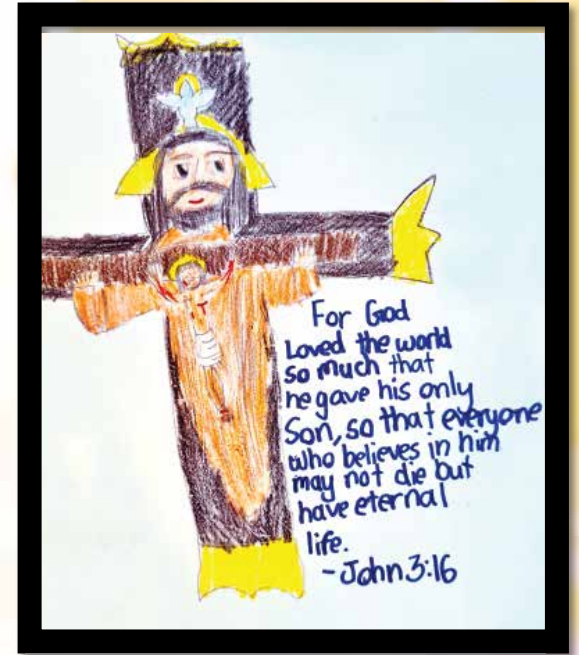 For God
Loved the world
so much that
he gave his only
Son, so that everyone
who believes in him
may not die but
have eternal
life.
- John 3:16